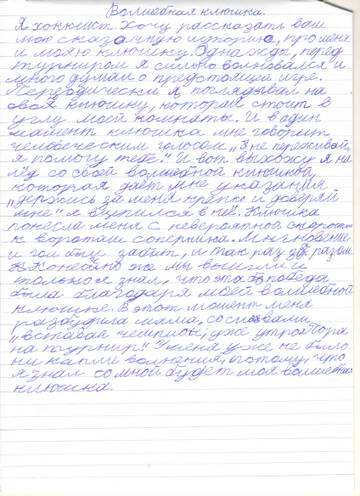 Волшебная клюшка.
Я хоккеист. Хочу рассказать вам
мою сказочную историю, про меня
и мою клюшку. Однажды, перед
турниром я сильно волновался и
много думал о предстоящей игре.
Периодически я поглядывал на
свою клюшку, которая стоит в
углу моей комнаты. И в один
момент клюшка мне говорит
человеческим голосом „Я не переживай,
я помогу тебе." И вот выхожу я на
лёд со своей волшебной клюшкой,
которая даёт мне указания
„держись за меня крепко и доверяй
мне" я вцепился в неё. Клюшка
понесла меня с невероятной скорост
к воротам соперника. Мгновение
и гол был забит, и так раз за разом
Конечно же мы выиграли и
только я знал, что эта победа
была благодаря моей волшебной
клюшке. В этот момент меня
разбудила мама, со словами
„вставай чемпион, уже утро. Пора
на турнир!" У меня уже не было
ни капли волнения, потому, что
я знал со мной будет моя волшебная
клюшка.